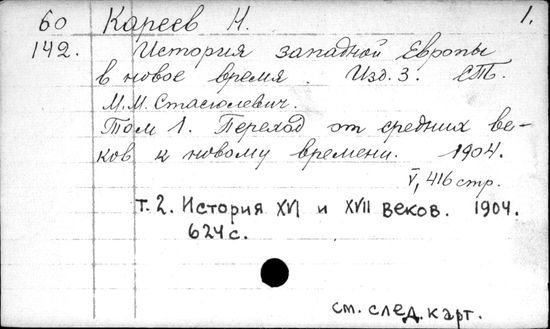 60 Кареев Н. 1.
142. История западной Европы
в новое время. Изд. 3. СТб.
М.М. Стасюлевич.
Том 1. Переход от средних ве-
ков к новому времени. 1904.
V, 416 стр.
т. 2. История XVI и XVII веков. 1904.
624 с.
см. след. карт.